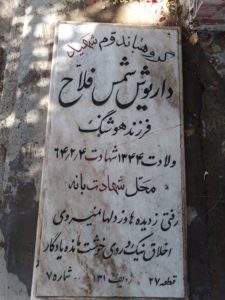 گروهباند قوم شهید
داریوش شمس فلاح
فرزند هوشنگ
ولادت ۱۳۴۴ شهادت ۶۴/۲/۴
محل شهادت بانه
رفتی ز دیده ها و ز دلها نمیروی
اخلاق نیک و روی خوشت مانده یادگار
قطعه ۲۷ ردیف ۱۳۱ شماره ۷